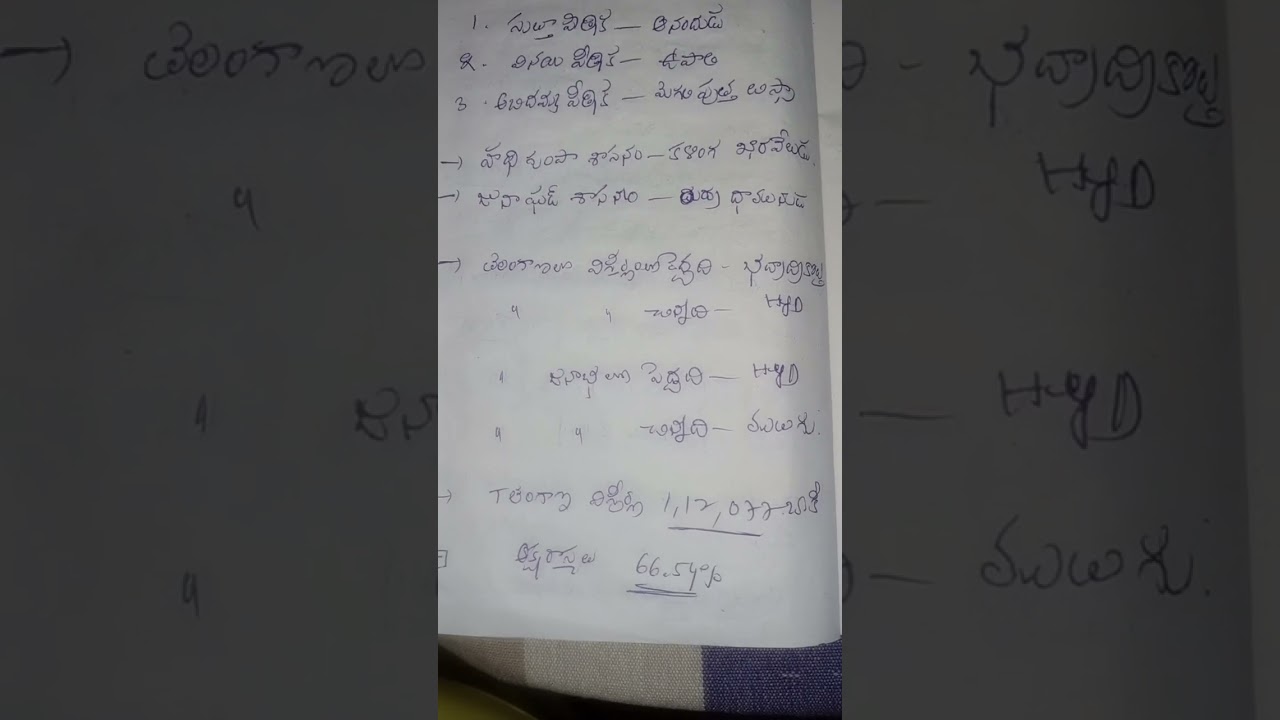 1. సుత్తాపిటిక — ఆనందుడు
2. వినయ పీఠిక — ఉపాలి
3. అబిదమ్మ పీఠిక — మొగలిపుత్త తిస్సా
→ హాథిగుంపా శాసనం — కళింగ ఖారవేలుడు.
→ జునాఘడ్ శాసనం — రుద్రదాముడు
→ తెలంగాణలు విస్తీర్ణంలో పెద్దది - భద్రాద్రికొత్త
" " చిన్నది — HYD
" జనాభాలో పెద్దది — HYD
" " చిన్నది — ములుగు.
→ Tతంగాణ విస్తీర్ణం 1,12,077 చ॥కి
అక్షరాస్యత 66.54%